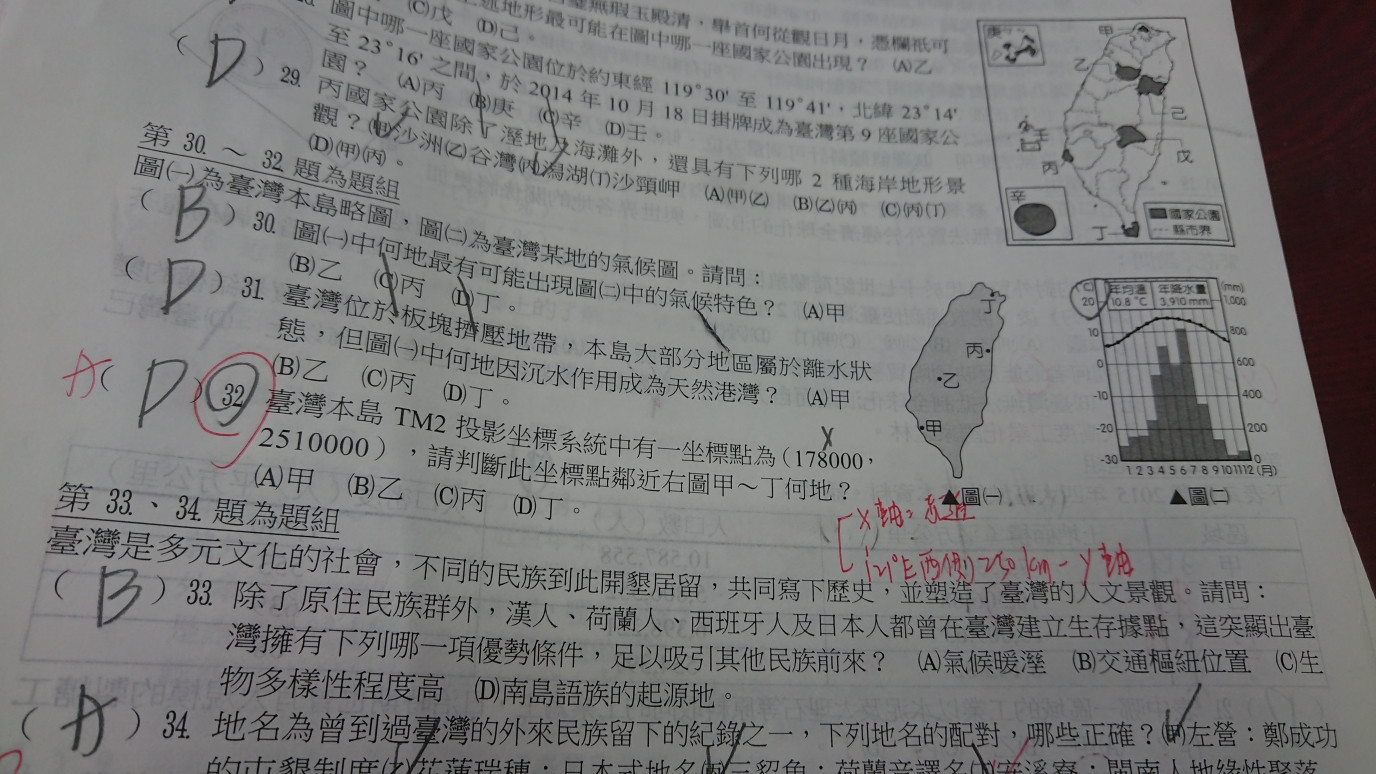 (C)戊 (D)己。
無瑕玉殿清，舉首何從觀日月，憑欄祇可
述地形最可能在圖中哪一座國家公園出現？ (A)乙
圖中哪一座國家公園位於約東經 119°30' 至 119°41'，北緯 23°14'
至 23°16' 之間，於 2014 年 10 月 18 日掛牌成為臺灣第 9 座國家公
園？ (A)丙 (B)庚 (C)辛 (D)壬。
( D ) 29. 丙國家公園除了溼地及海灘外，還具有下列哪 2 種海岸地形景
觀？(甲)沙洲(乙)谷灣(丙)潟湖(丁)沙頸岬 (A)(甲)(乙) (B)(乙)(丙) (C)(丙)(丁)
(D)(甲)(丙)。
第 30. ～ 32. 題為題組
圖㈠為臺灣本島略圖，圖㈡為臺灣某地的氣候圖。請問：
( B ) 30. 圖㈠中何地最有可能出現圖㈡中的氣候特色？ (A)甲
(B)乙 (C)丙 (D)丁。
( D ) 31. 臺灣位於板塊擠壓地帶，本島大部分地區屬於離水狀
態，但圖㈠中何地因沉水作用成為天然港灣？ (A)甲
(B)乙 (C)丙 (D)丁。
A ( D ) 32. 臺灣本島 TM2 投影坐標系統中有一坐標點為（178000，
X
2510000），請判斷此坐標點鄰近右圖甲～丁何地？
(A)甲 (B)乙 (C)丙 (D)丁。
X軸：赤道
121°E西側250km－Y軸
第 33. 、 34. 題為題組
臺灣是多元文化的社會，不同的民族到此開墾居留，共同寫下歷史，並塑造了臺灣的人文景觀。請問：
( B ) 33. 除了原住民族群外，漢人、荷蘭人、西班牙人及日本人都曾在臺灣建立生存據點，這突顯出臺
灣擁有下列哪一項優勢條件，足以吸引其他民族前來？ (A)氣候暖溼 (B)交通樞紐位置 (C)生
物多樣性程度高 (D)南島語族的起源地。
( A ) 34. 地名為曾到過臺灣的外來民族留下的紀錄之一，下列地名的配對，哪些正確？(甲)左營：鄭成功
的屯墾制度(乙)花蓮瑞穗：日本式地名(丙)三貂角：荷蘭音譯名(丁)
溪寮：閩南人地緣性聚落
庚
甲
乙
己
壬
丙
戊
辛
丁
國家公園
縣市界
丙
乙
甲
▲圖㈠
(℃) 年均溫 年降水量 (mm)
20 10.8 ℃ 3,910 mm 1,000
10 800
600
-10 400
-20 200
-30 0
1 2 3 4 5 6 7 8 9 10 11 12 (月)
▲圖㈡